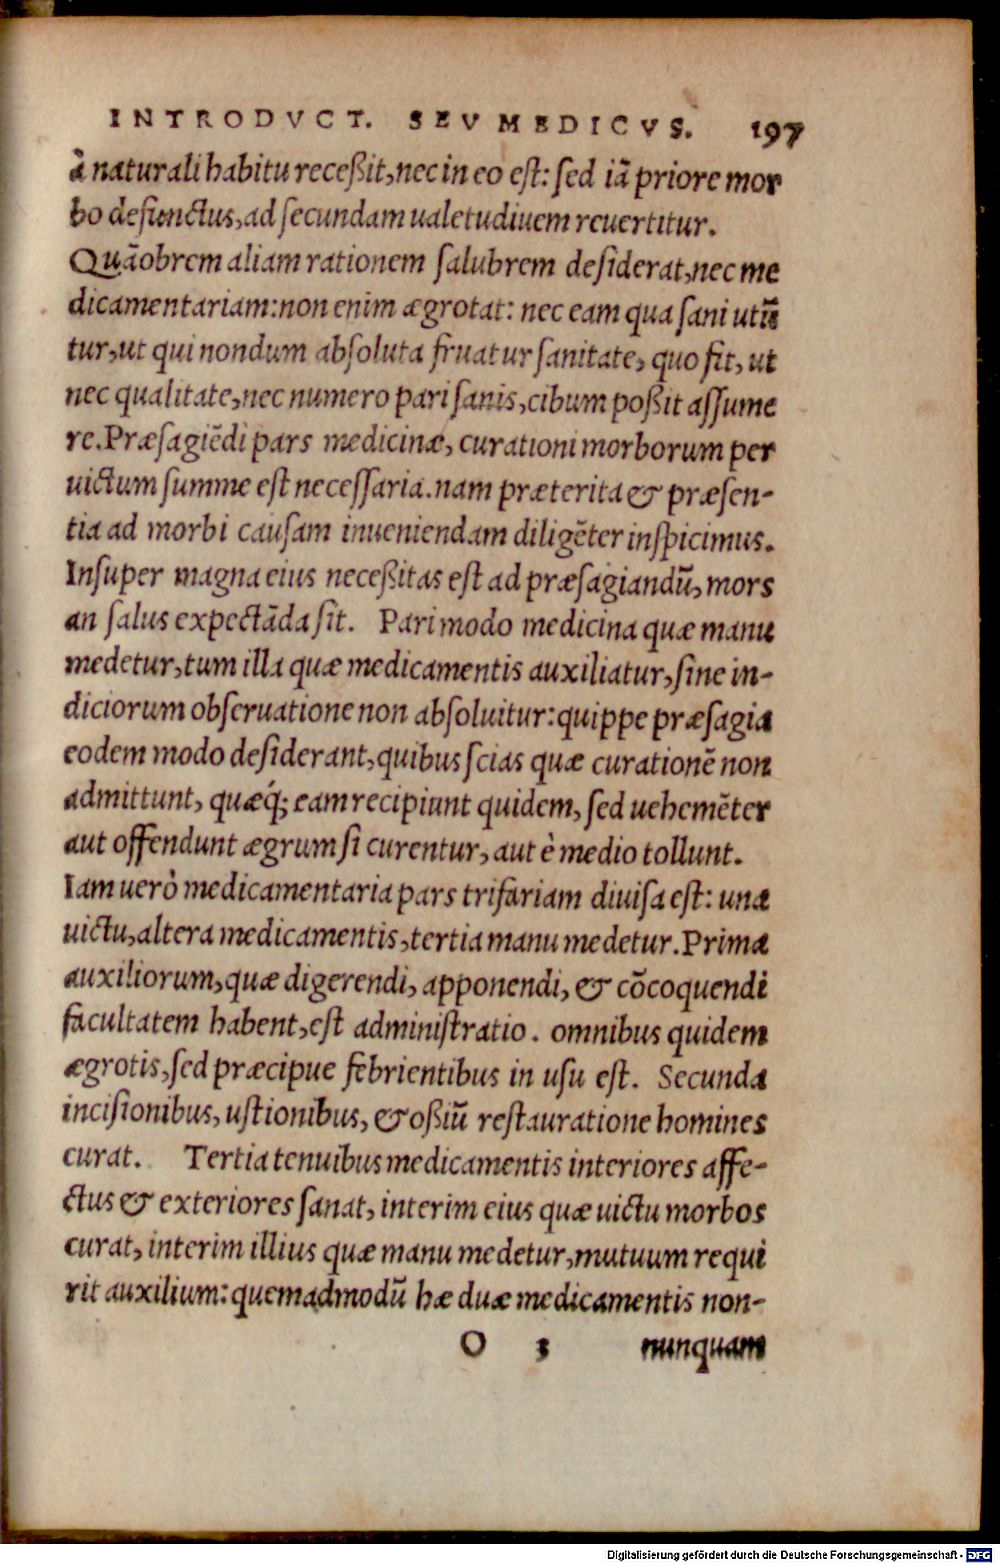 INTRODVCT. SEV MEDICVS. 197
à naturali habitu receßit, nec in eo est: sed iã priore mor
bo defunctus, ad secundam ualetudiuem reuertitur.
Quãobrem aliam rationem salubrem desiderat, nec me
dicamentariam: non enim ægrotat: nec eam qua sani utũ
tur, ut qui nondum absoluta fruatur sanitate, quo fit, ut
nec qualitate, nec numero pari sanis, cibum poßit assume
re. Præsagiẽdi pars medicinæ, curationi morborum per
uictum summe est necessaria. nam præterita & præsen-
tia ad morbi causam inueniendam diligẽter inspicimus.
Insuper magna eius neceßitas est ad præsagiandũ, mors
an salus expectãda sit. Pari modo medicina quæ manu
medetur, tum illa quæ medicamentis auxiliatur, sine in-
diciorum obseruatione non absoluitur: quippe præsagia
eodem modo desiderant, quibus scias quæ curationẽ non
admittunt, quæq́; eam recipiunt quidem, sed uehemẽter
aut offendunt ægrum si curentur, aut è medio tollunt.
Iam uerò medicamentaria pars trifariam diuisa est: una
uictu, altera medicamentis, tertia manu medetur. Prima
auxiliorum, quæ digerendi, apponendi, & cõcoquendi
facultatem habent, est administratio. omnibus quidem
ægrotis, sed præcipue febrientibus in usu est. Secunda
incisionibus, ustionibus, & oßiũ restauratione homines
curat. Tertia tenuibus medicamentis interiores affe-
ctus & exteriores sanat, interim eius quæ uictu morbos
curat, interim illius quæ manu medetur, mutuum requi
rit auxilium: quemadmodũ hæ duæ medicamentis non-
O 3 nunquam
Digitalisierung gefördert durch die Deutsche Forschungsgemeinschaft - DFG